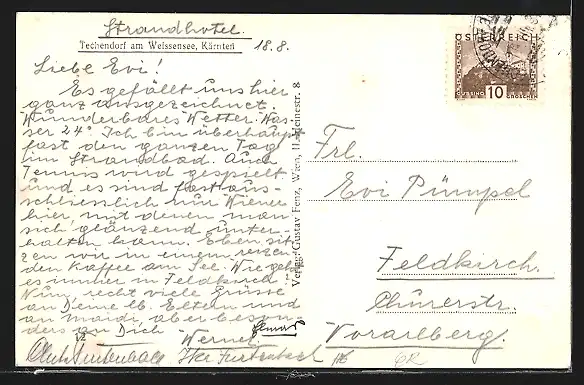 Strandhotel
Techendorf am Weissensee, Kärnten
18.8.
Liebe Evi!
Es gefällt uns hier
ganz ausgezeichnet.
Wunderbares Wetter. Was-
ser 24° Ich bin überhaupt
fast den ganzen Tag
im Strandbad. Auch
Tennis wird gespielt
und es sind fast aus-
schliesslich nur Wiener
hier, mit denen man
sich glänzend unter-
halten kann. Eben sit-
zen wir in einem reizen-
den Kaffee am See. Wie geht
es immer in Feldkirch?
Nimm recht viele Grüsse
an Deine lb. Eltern und
an Maidi, aber beson-
ders an Dich
Werner
Furtenbach
Verlag: Gustav Fenz, Wien, II., Heinestr. 8
ÖSTERREICH
10
GÜSSING GROSCHEN
Frl.
Evi Pümpel
Feldkirch.
Churerstr.
Vorarlberg.